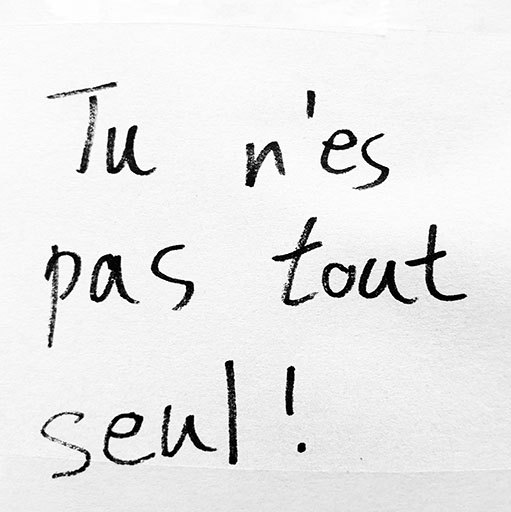 Tu n'es
pas tout
seul!